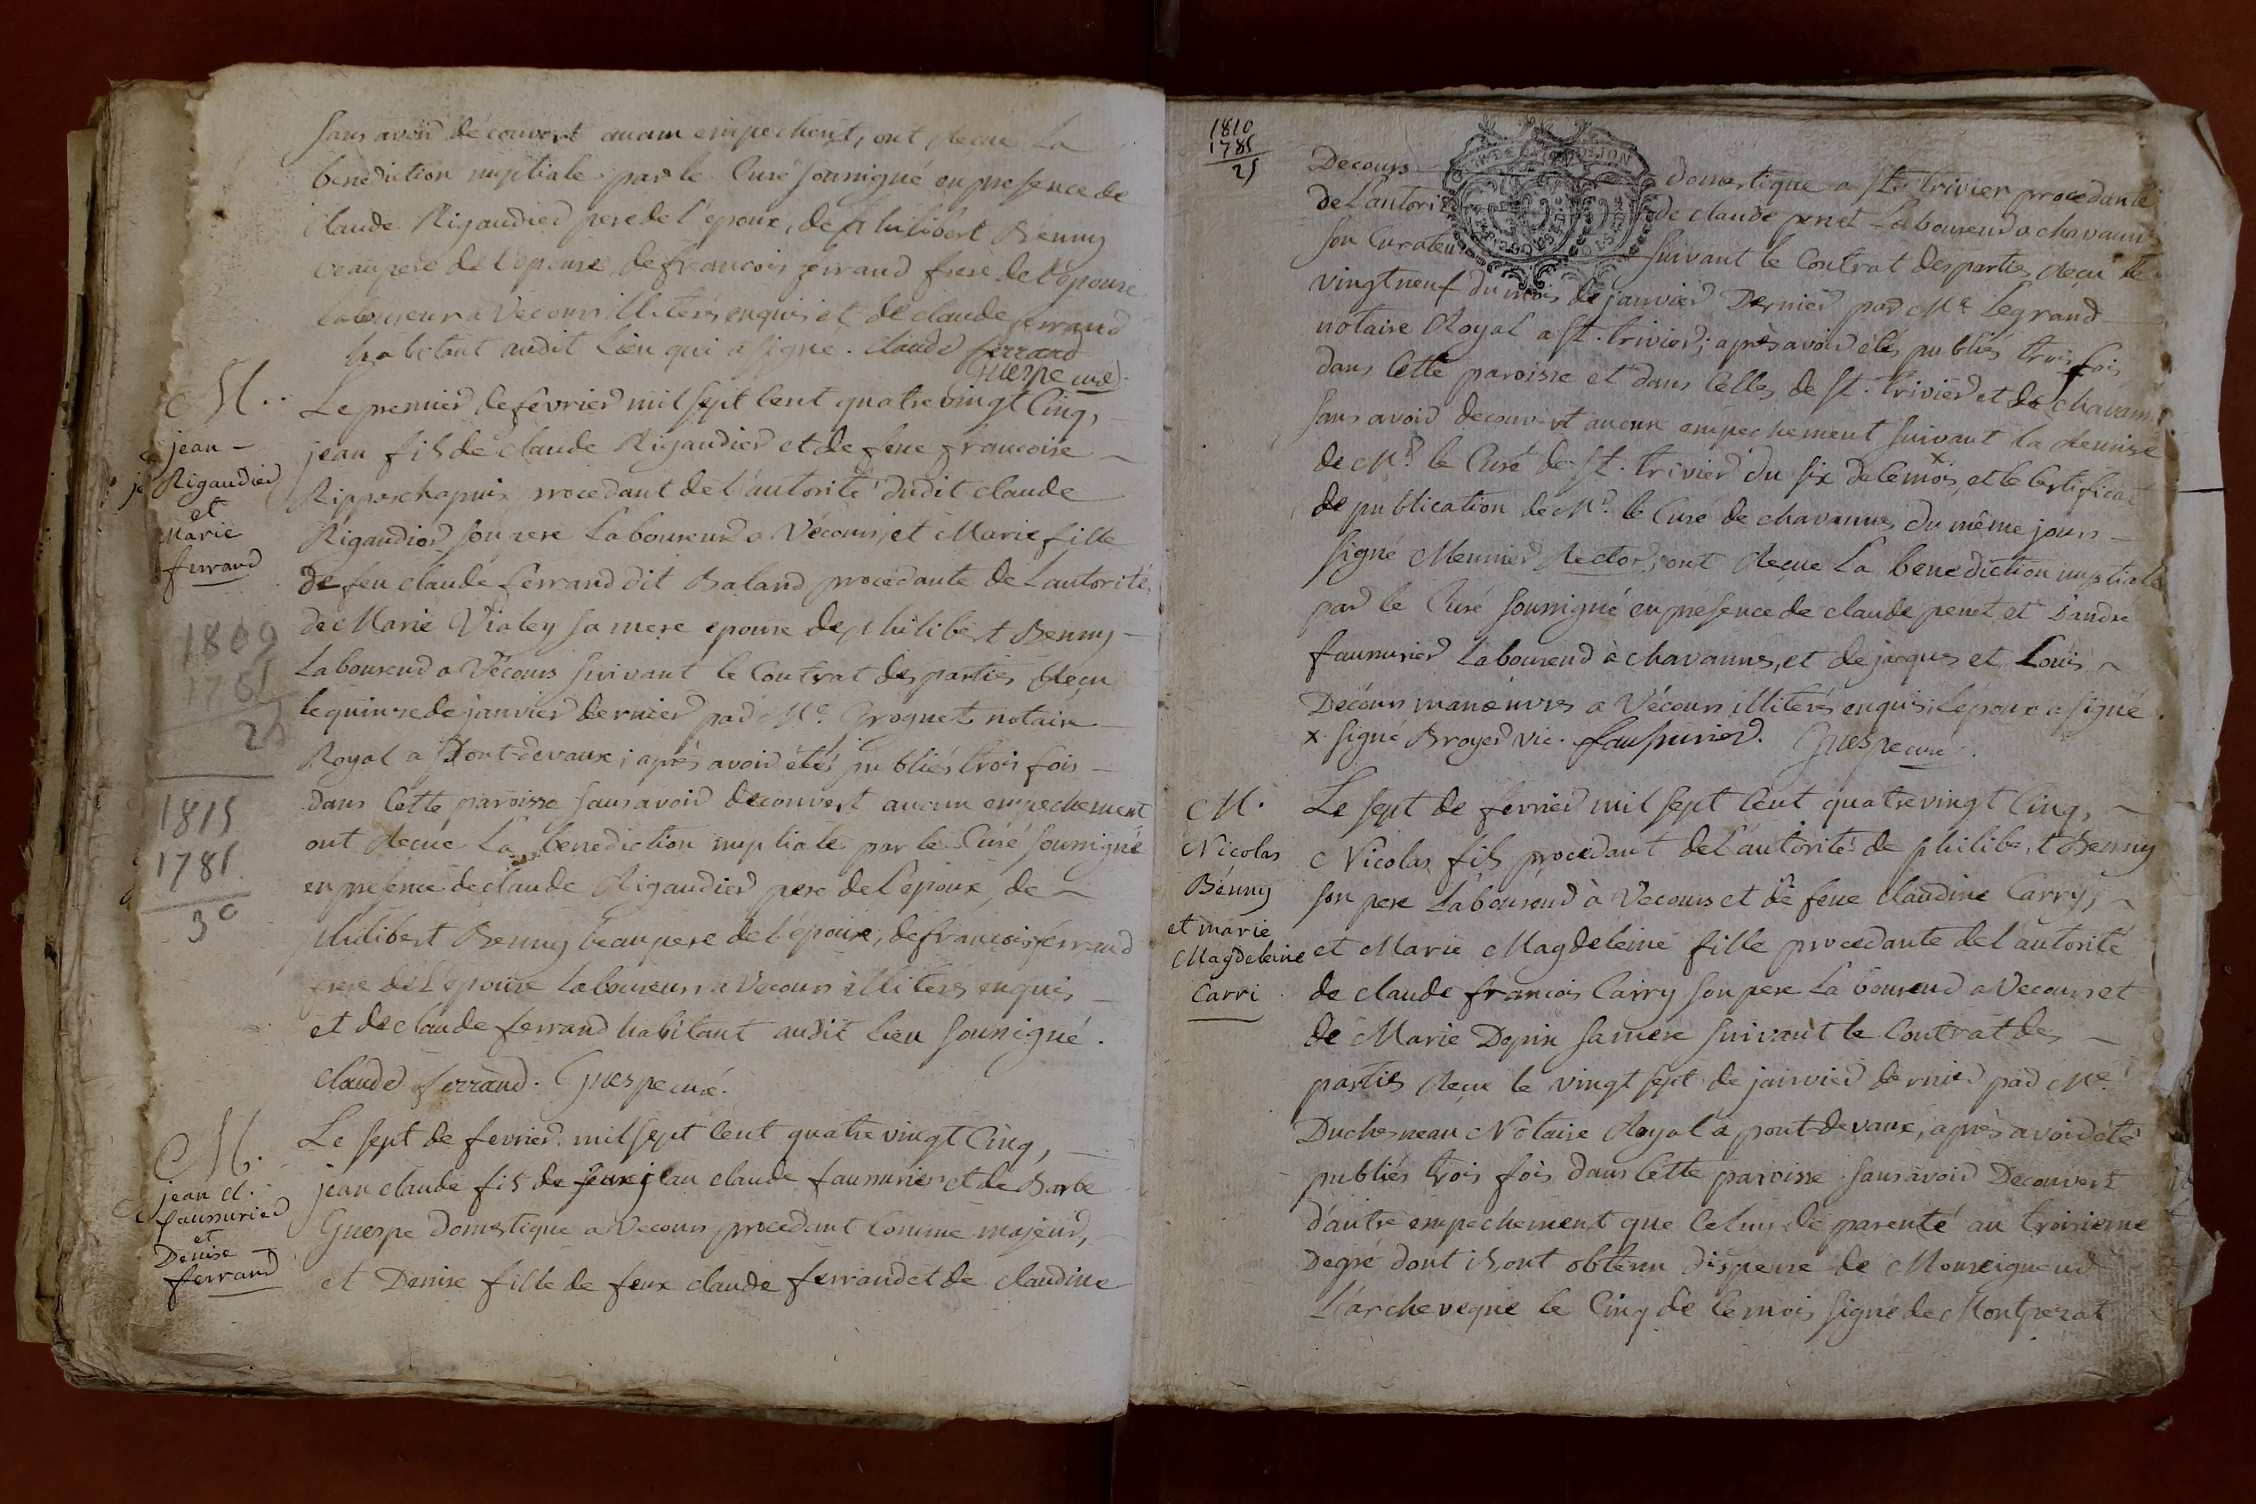 sans avoir découvert aucun empechement, ont Recue La
benediction nuptiale par le Curé soussigné en presence de
claude Rigaudier pere de l'époux, de philibert Bénny
beaupere de l'epouse, de francois ferrand frere de l'épouse
laboureurs a Vecours illiterés enquis et de claude ferrand
habitant audit Lieu qui a signé. Claude ferrand
Guespe curé.
M.
jean
Rigaudier
et
Marie
ferrand
Le premier de février mil sept cent quatrevingt cinq,
jean fils de claude Rigaudier et de feue francoise
procedant de l'autorité dudit claude
Rigaudier son pere Laboureur a Vécours, et Marie fille
de feu claude ferrand dit Baland procedante de l'autorité
de Marie Vialey sa mere epouse de philibert Benny
Laboureur a Vécours suivant le Contrat des parties Reçu
le quinze de janvier dernier par Me. Groguet notaire
Royal a Pont-devaux; après avoir étés publiés trois fois
dans cette paroisse sans avoir découvert aucun empechement
ont Recue La benediction nuptiale par le Curé soussigné
en presence de claude Rigaudier pere de l'epoux, de
philibert Benny beaupere de l'épouse, de francois ferrand
frere de L'epouse Laboureurs a Vecours illiterés enquis
et de claude ferrand habitant audit Lieu soussigné.
claude ferrand. Guespe curé.
1809
1785
1815
1785
30
M.
jean cl.
faussurier
et
Denise
ferrand
Le sept de fevrier mil sept cent quatrevingt cinq,
jean claude fils de feux jean claude faussurier et de Barbe
Guespe domestique a Vecours procedant comme majeur,
et Denise fille de feux claude ferrand et de claudine
1810
1785
25
Decours domestique a St. trivier procedante
de l'autorité de claude penet Laboureur a chavannes
son Curateur suivant le Contrat des parties Reçu le
vingt neuf du mois de janvier Dernier par Me. Legrand
notaire Royal a St. trivier; après avoir étés publiés trois fois
dans cette paroisse et dans celles de St. trivier et de chavannes
sans avoir decouvert aucun empechement suivant la Remise
de Mr. le Curé de St. trivier du six de ce mois x, et le Certificat
de publication de Mr. le Curé de chavannes du même jours
signé Meunier Rector, ont Reçue La benediction nuptiale
par le Curé soussigné en présence de claude penet et D'andré
faussurier Laboureur à chavannes, et de jacques et Louis
Decours manœuvres a Vécours illiterés enquis. l'époux a signé.
x. signé Broyer vic. faussurier. Guespe curé.
M.
Nicolas
Bénny
et marie
Magdeleine
Carri
Le sept de fevrier mil sept cent quatrevingt cinq,
Nicolas fils procedant de l'autorité de philibert Benny
son pere Laboureur à Vecours et de feue claudine Carry,
et Marie Magdeleine fille procedante de l'autorité
de claude francois Carry son pere Laboureur a Vecours et
de Marie Depin sa mere suivant le Contrat des
parties Reçu le vingt sept de janvier dernier par Me.
Duchesneau Notaire Royal a pont-devaux, après avoir été
publiés trois fois dans cette paroisse sans avoir Decouvert
d'autre empechement que celui de parenté au troisieme
Degré dont ils ont obtenu dispense de Monseigneur
L'archeveque le cinq de ce mois signé de Montperat